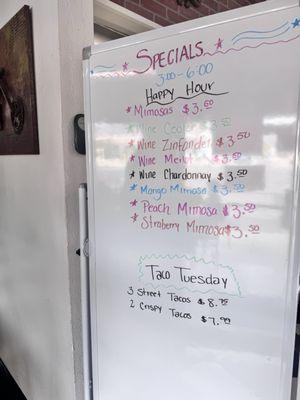 SPECIALS
3:00 - 6:00
Happy Hour
* Mimosas $3.50
* Wine Cooler $3.50
* Wine Zinfandel $3.50
* Wine Merlot $3.50
* Wine Chardonnay $3.50
* Mango Mimosa $3.50
* Peach Mimosa $3.50
* Straberry Mimosa $3.50
Taco Tuesday
3 Street Tacos $8.75
2 Crispy Tacos $7.99